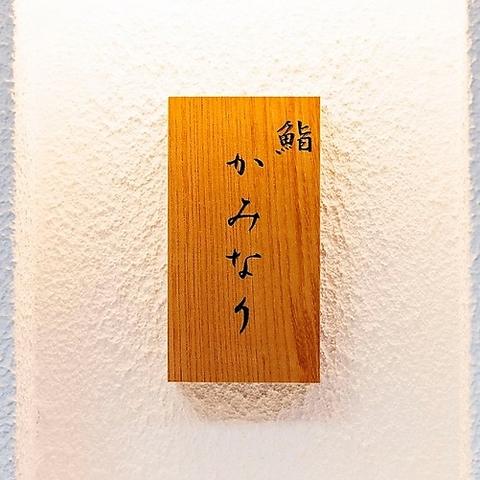 鮨
かみなり